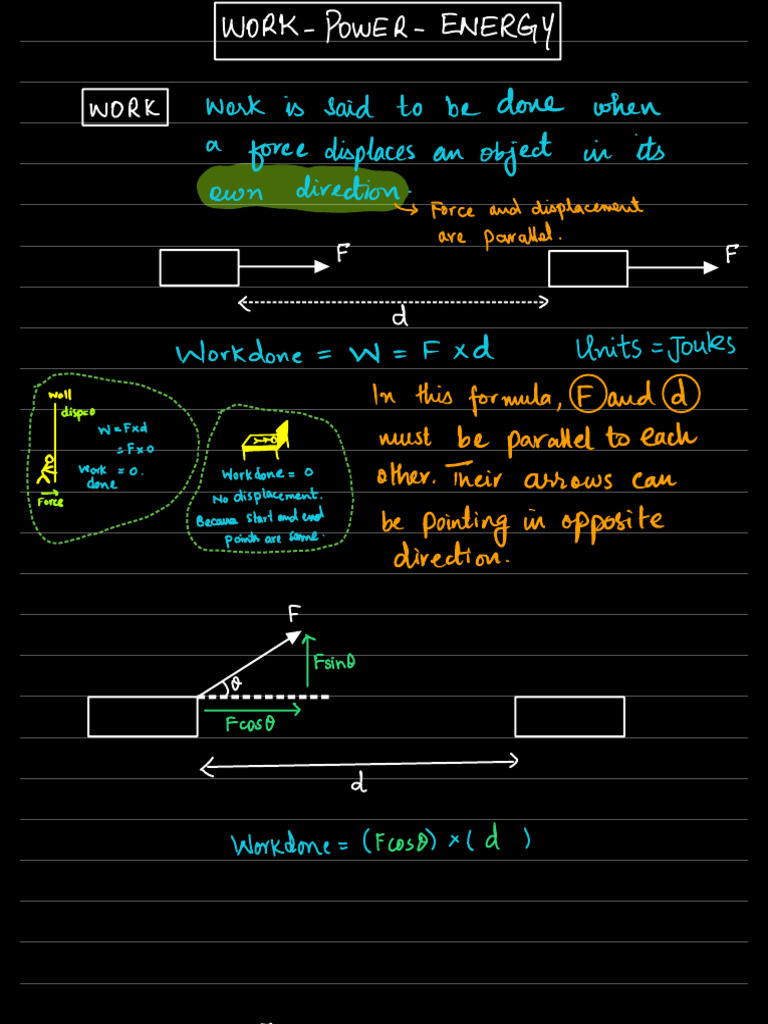 WORK - POWER - ENERGY
WORK
Work is said to be done when
a force displaces an object in its
own direction.
→ Force and displacement
are parallel.
F
F
d
Workdone = W = F x d
Units = Joules
Wall
disp=0
W = F x d
= F x 0
Work = 0.
done
Force
Workdone = 0
No displacement.
Because start and end
points are same.
In this formula, F and d
must be parallel to each
other. Their arrows can
be pointing in opposite
direction.
F
θ
Fsinθ
Fcosθ
d
Workdone = (Fcosθ) × ( d )